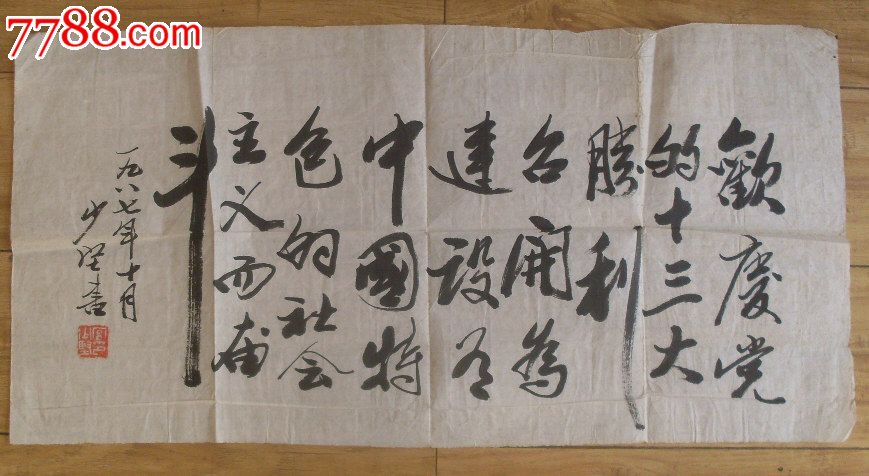 7788.com
歡慶党
的十三大
勝利
召開為
建設有
中國特
色的社会
主义而奋
斗
一九八七年十月
少坚書